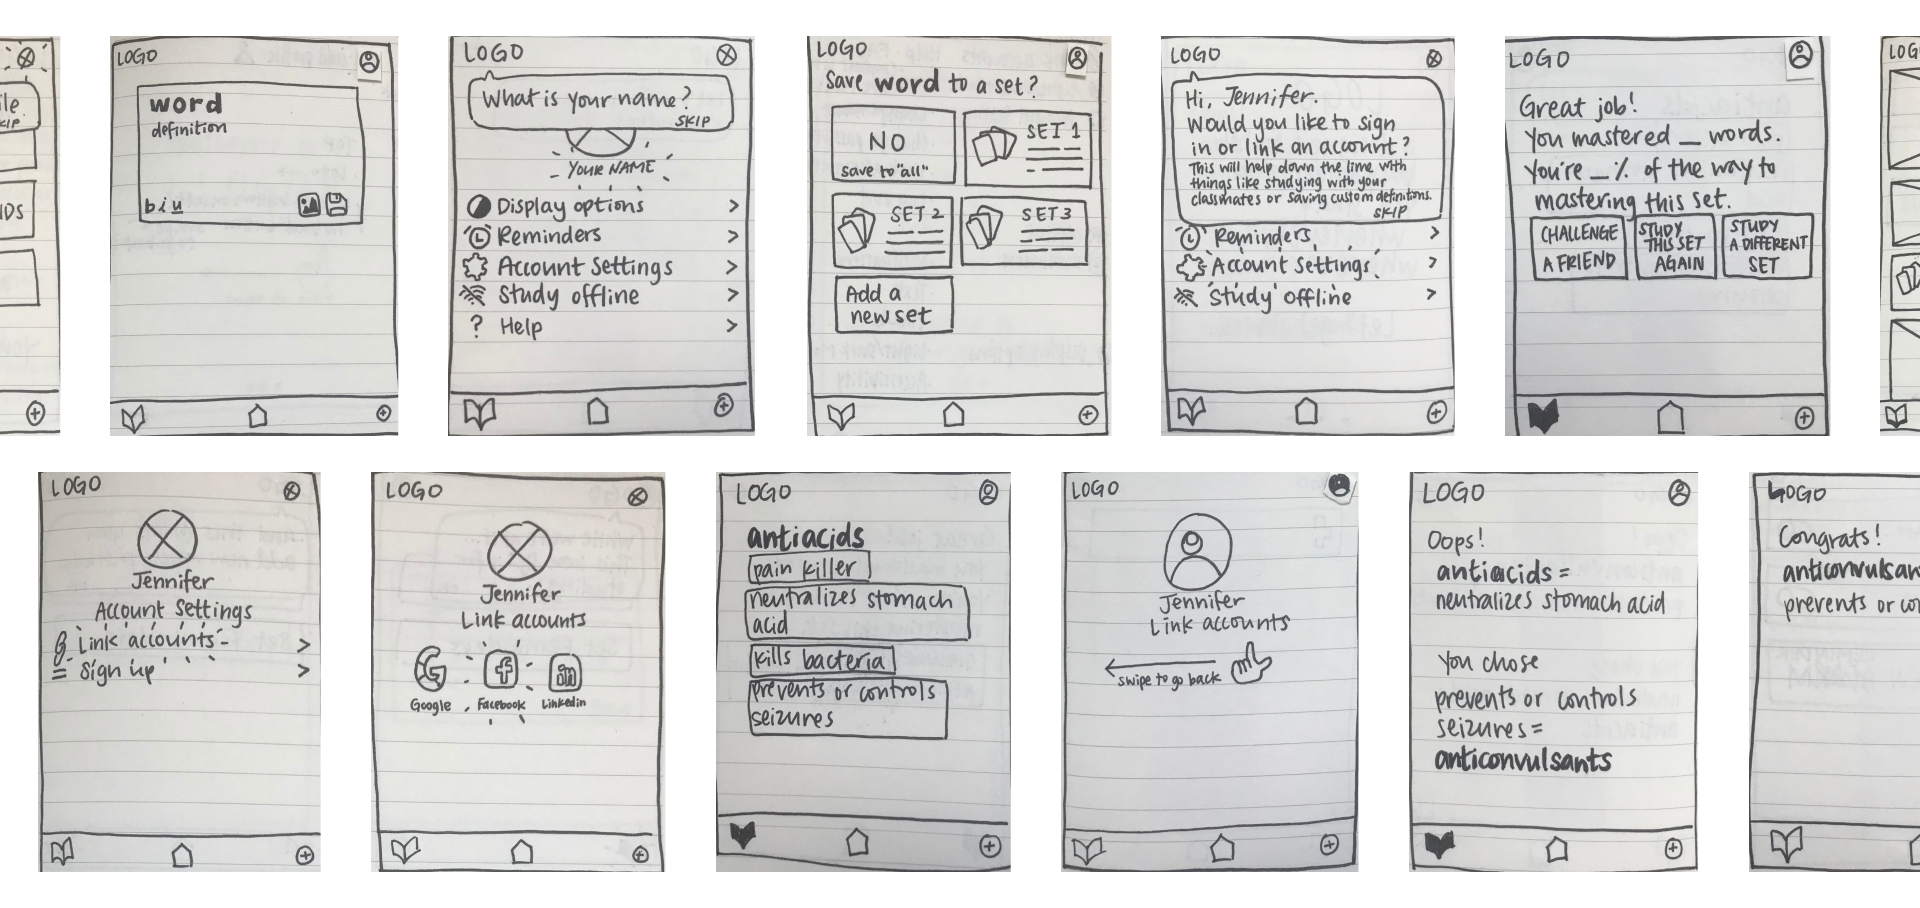 ile
KIP
NDS
LOGO
word
definition
b i u
LOGO
What is your name?
SKIP
YOUR NAME
Display options >
Reminders >
Account Settings >
Study offline >
? Help >
LOGO
Save word to a set?
NO
save to "all"
SET 1
SET 2
SET 3
Add a
new set
LOGO
Hi, Jennifer.
Would you like to sign
in or link an account?
This will help down the line with
things like studying with your
classmates or saving custom definitions.
SKIP
Reminders >
Account Settings >
Study offline >
LOGO
Great job!
You mastered _ words.
You're _ % of the way to
mastering this set.
CHALLENGE
A FRIEND
STUDY
THIS SET
AGAIN
STUDY
A DIFFERENT
SET
LOG
LOGO
Jennifer
Account Settings
Link accounts >
Sign up >
LOGO
Jennifer
Link accounts
G
f
in
Google
Facebook
Linkedin
LOGO
antiacids
pain killer
neutralizes stomach
acid
kills bacteria
prevents or controls
seizures
LOGO
Jennifer
Link accounts
swipe to go back
LOGO
Oops!
antiacids =
neutralizes stomach acid
You chose
prevents or controls
seizures =
anticonvulsants
LOGO
Congrats!
anticonvulsan
prevents or co